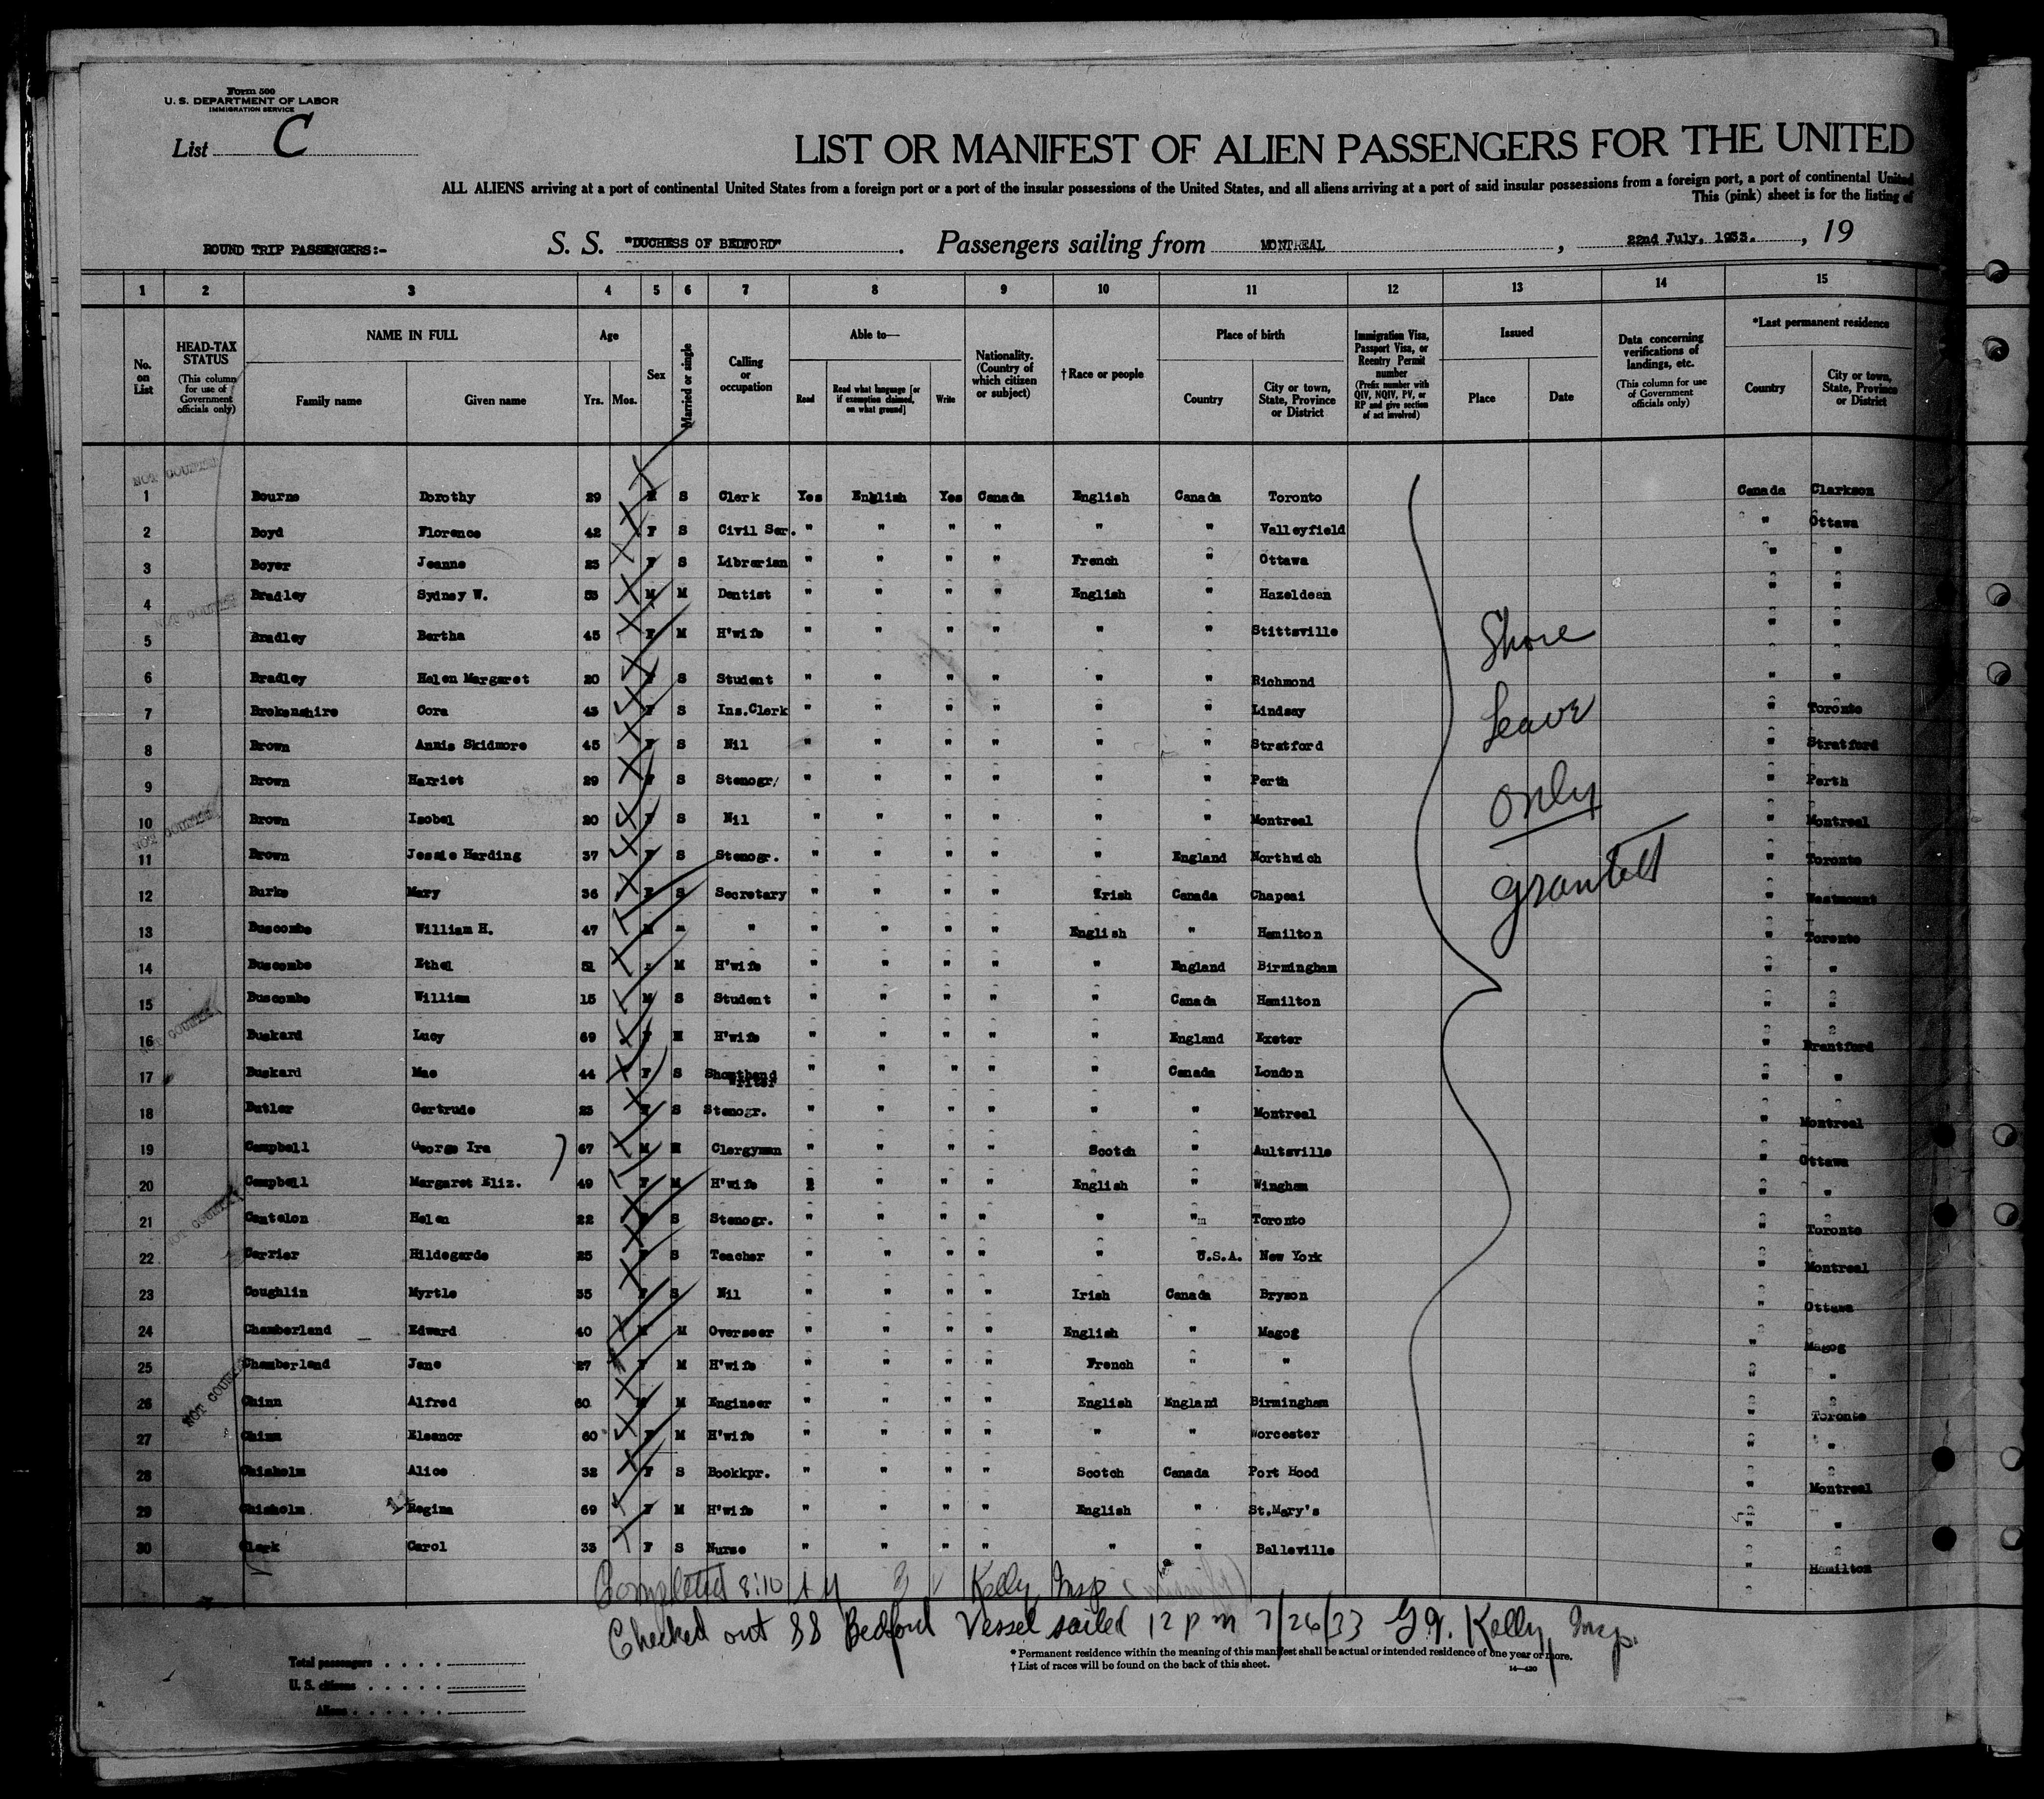 Form 500
U. S. DEPARTMENT OF LABOR
IMMIGRATION SERVICE
List C
LIST OR MANIFEST OF ALIEN PASSENGERS FOR THE UNITED
ALL ALIENS arriving at a port of continental United States from a foreign port or a port of the insular possessions of the United States, and all aliens arriving at a port of said insular possessions from a foreign port, a port of continental United
This (pink) sheet is for the listing of
ROUND TRIP PASSENGERS:- S. S. "DUCHESS OF BEDFORD". Passengers sailing from MONTREAL, 22nd July, 1933., 19
1 2 3 4 5 6 7 8 9 10 11 12 13 14 15
No. on List
HEAD-TAX STATUS (This column for use of Government officials only)
NAME IN FULL Family name Given name
Age Yrs. Mos.
Sex
Married or single
Calling or occupation
Able to— Read Read what language [or if exemption claimed, on what ground] Write
Nationality. (Country of which citizen or subject)
†Race or people
Place of birth Country City or town, State, Province or District
Immigration Visa, Passport Visa, or Reentry Permit number (Prefix number with QIV, NQIV, PV, or RP and give section of act involved)
Issued Place Date
Data concerning verifications of landings, etc. (This column for use of Government officials only)
*Last permanent residence Country City or town, State, Province or District
NOT COUNTED
1 Bourne Dorothy 29 S Clerk Yes English Yes Canada English Canada Toronto Canada Clarkson
2 Boyd Florence 42 F S Civil Ser. " " " " " " Valleyfield " Ottawa
3 Boyer Jeanne 23 F S Librarian " " " " French " Ottawa " "
NOT COUNTED
4 Bradley Sydney W. 53 M M Dentist " " " " English " Hazeldean " "
5 Bradley Bertha 45 F M H'wife " " " " " " Stittsville " "
6 Bradley Helen Margaret 20 S Student " " " " " " Richmond " "
7 Brokenshire Cora 43 F S Ins.Clerk " " " " " " Lindsay " Toronto
8 Brown Annie Skidmore 45 F S Nil " " " " " " Stratford " Stratford
9 Brown Harriet 29 F S Stenogr/ " " " " " " Perth " Perth
NOT COUNTED
10 Brown Isobel 20 F S Nil " " " " " " Montreal " Montreal
11 Brown Jessie Harding 37 F S Stenogr. " " " " " England Northwich " Toronto
12 Burke Mary 36 F S Secretary " " " " Irish Canada Chapeai " Westmount
13 Buscombe William H. 47 M " " " " " English " Hamilton " Toronto
14 Buscombe Ethel 51 M H'wife " " " " " England Birmingham " "
15 Buscombe William 15 M S Student " " " " " Canada Hamilton " "
NOT COUNTED
16 Buskard Lucy 69 F M H'wife " " " " " England Exeter " Brantford
17 Buskard Mae 44 F S Shorthand Writer " " " " " Canada London " "
18 Butler Gertrude 23 S Stenogr. " " " " " " Montreal " Montreal
19 Campbell George Ira 67 M M Clergyman " " " " Scotch " Aultsville " Ottawa
20 Campbell Margaret Eliz. 49 F M H'wife " " " English " Wingham " "
NOT COUNTED
21 Cantelon Helen 22 S Stenogr. " " " " " " Toronto " Toronto
22 Carrier Hildegarde 25 F S Teacher " " " " " U.S.A. New York " Montreal
23 Coughlin Myrtle 35 F S Nil " " " " Irish Canada Bryson " Ottawa
24 Chamberland Edward 40 M M Overseer " " " " English " Magog " Magog
25 Chamberland Jane 27 F M H'wife " " " " French " " " "
NOT COUNTED
26 Chinn Alfred 60 M M Engineer " " " " English England Birmingham " Toronto
27 Chinn Eleanor 60 F M H'wife " " " " " " Worcester " "
28 Chisholm Alice 32 F S Bookkpr. " " " " Scotch Canada Port Hood " Montreal
29 Chisholm Regina 69 F M H'wife " " " " English " St.Mary's " "
30 Clark Carol 33 F S Nurse " " " " " " Belleville " Hamilton
Shore
Leave
only
granted
Completed 8:10 AM Kelly Insp
Checked out SS Bedford Vessel sailed 12 pm 7/26/33 Kelly, Insp.
* Permanent residence within the meaning of this manifest shall be actual or intended residence of one year or more.
† List of races will be found on the back of this sheet.
14—430
Total passengers
U. S. citizens
Aliens